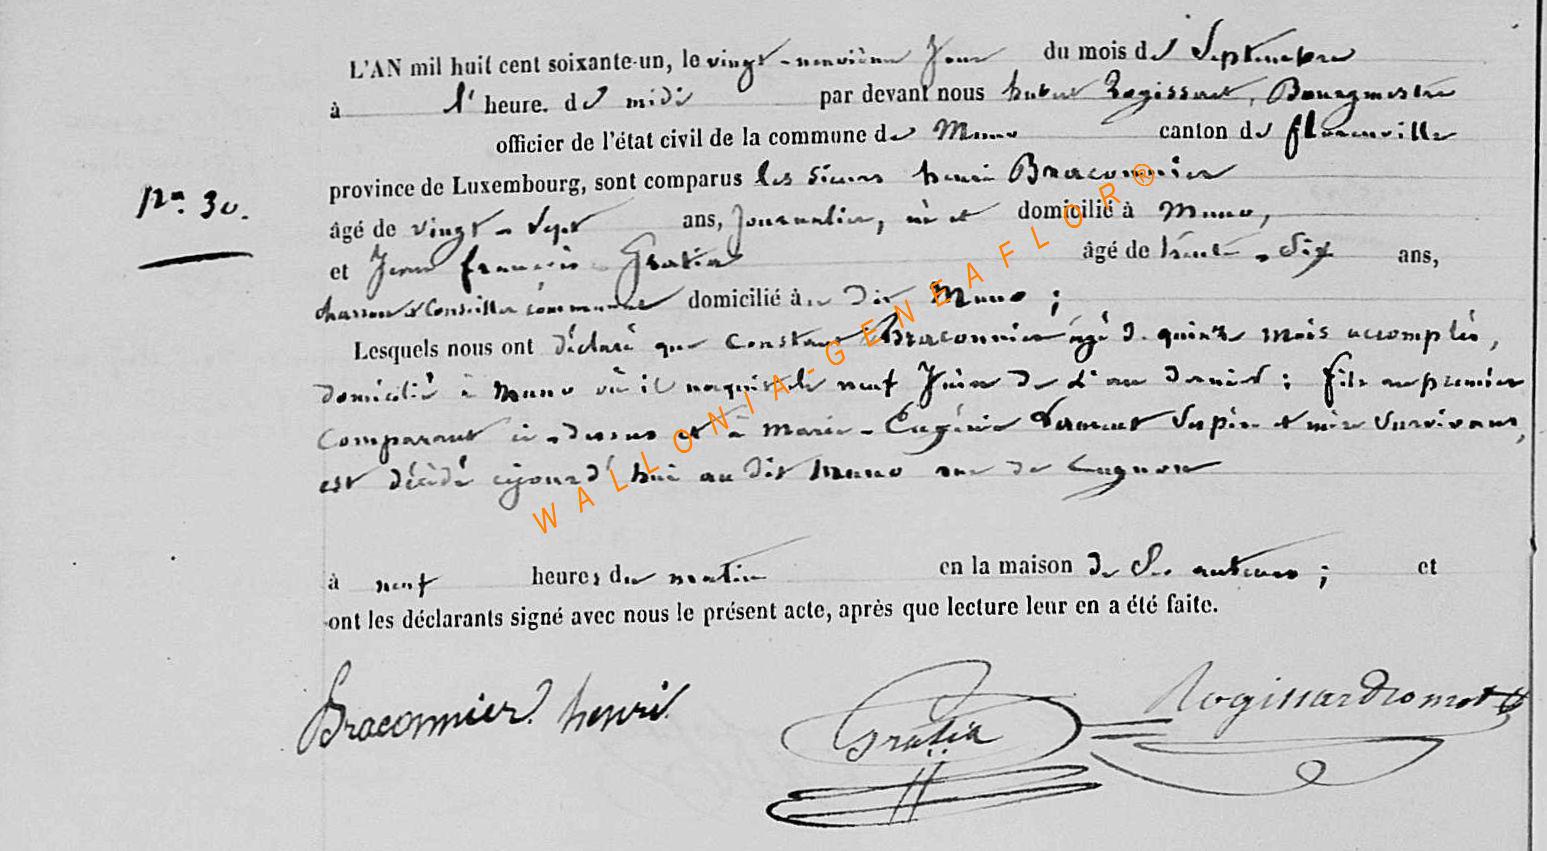 L'AN mil huit cent soixante-un, le vingt-neuvième Jour du mois de Septembre
à l' heure. de midi par devant nous hubert Rogissart, Bourgmestre
officier de l'état civil de la commune de Muno canton de florenville
N° 30.
province de Luxembourg, sont comparus les Sieurs henri Braconnier
âgé de vingt-Sept ans, Journalier, né et domicilié à Muno,
et Jean françois Gratia âgé de trente-Six ans,
charron & Conseiller communal domicilié à dit Muno;
Lesquels nous ont déclaré que Constant Braconnier âgé de quinze mois accomplis,
domicilié à Muno où il naquit le neuf Juin de l'an dernier; fils au premier
Comparant ci-dessus et à Marie-Eugénie Ses père et mère Survivans,
est décédé cejourd'hui au dit Muno rue de
à neuf heures du matin en la maison de Ses auteurs; et
ont les déclarants signé avec nous le présent acte, après que lecture leur en a été faite.
Braconnier henri
Gratia
Rogissart
WALLONIA-GENEAFLOR®